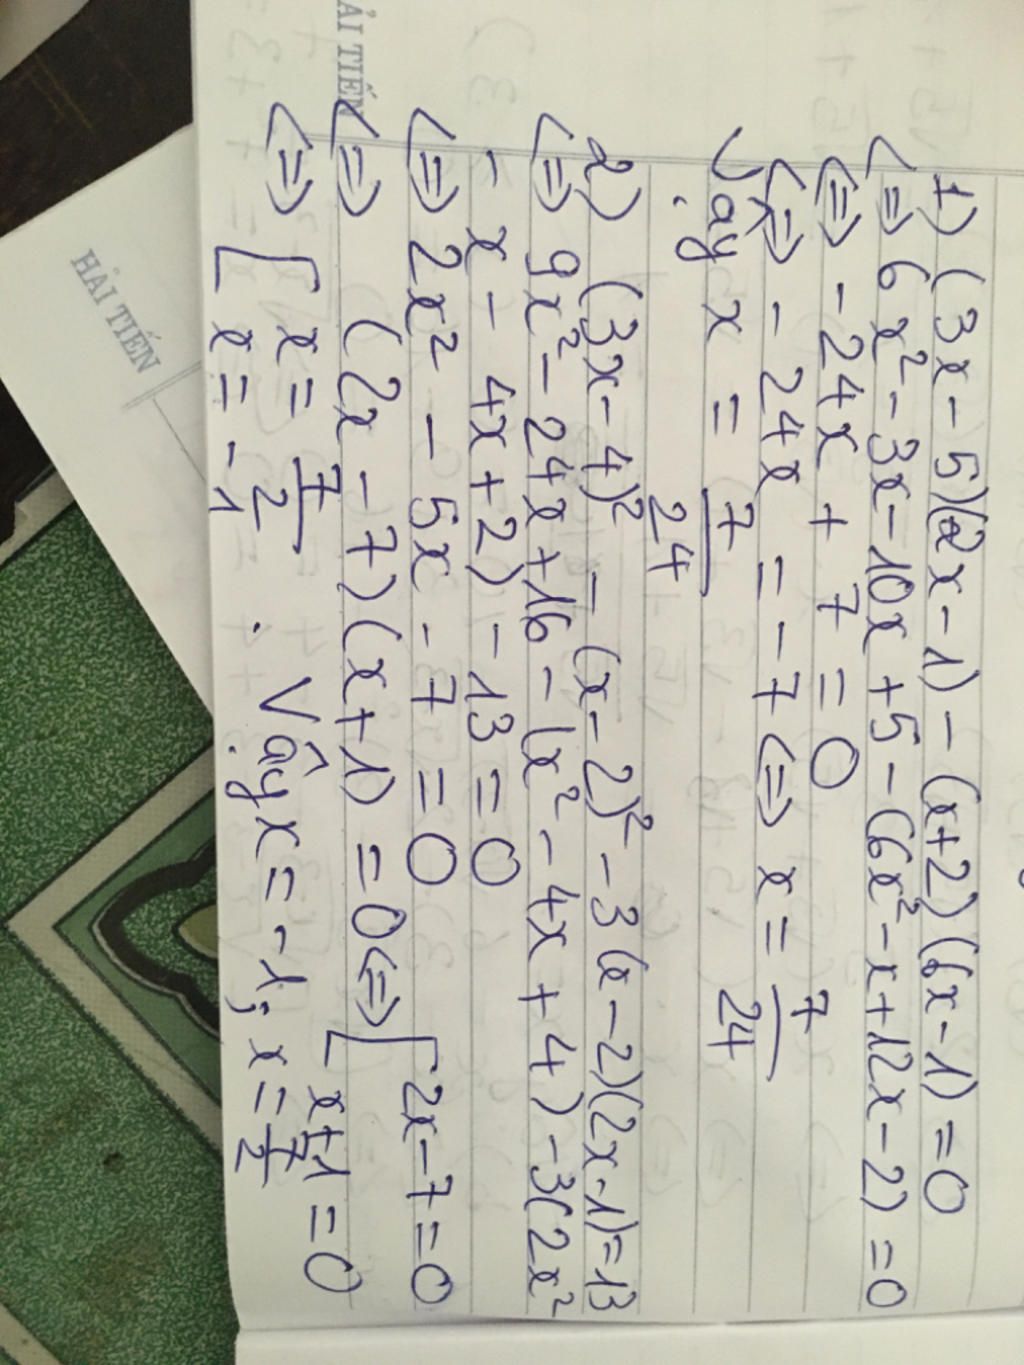 ẢI TIẾN
1) (3x - 5)(2x - 1) - (x+2)(6x - 1) = 0
<=> 6x² - 3x - 10x + 5 - (6x² - x + 12x - 2) = 0
<=> -24x + 7 = 0
<=> - 24x = -7 <=> x = 7/24
Vậy x = 7/24
2) (3x - 4)² - (x - 2)² - 3(x - 2)(2x - 1) = 13
<=> 9x² - 24x + 16 - (x² - 4x + 4) - 3(2x²
- x - 4x + 2) - 13 = 0
<=> 2x² - 5x - 7 = 0
<=> (2x - 7)(x + 1) = 0 <=> [ 2x - 7 = 0
x + 1 = 0
<=> [ x = 7/2
x = -1 . Vậy x = -1; x = 7/2
HẢI TIẾN